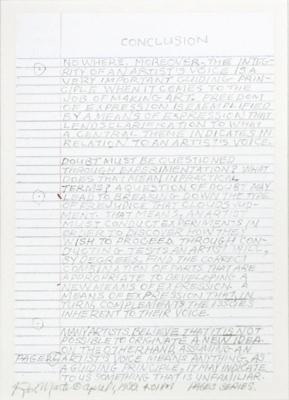 CONCLUSION
NOWHERE, MOREOVER, THE INTEG-
RITY OF AN ARTIST'S VOICE IS A
VERY IMPORTANT GUIDING PRIN-
CIPLE WHEN IT COMES TO THE
JOB OF MAKING ART. FREEDOM
OF EXPRESSION IS EXEMPLIFIED
BY A MEANS OF EXPRESSION THAT
LENDS CLARIFICATION TO WHAT
A CENTRAL THEME INDICATES IN
RELATION TO AN ARTIST'S VOICE.
DOUBT MUST BE QUESTIONED
THROUGH EXPERIMENTATION? WHAT
DOES THAT MEAN IN PRACTICAL
TERMS? A QUESTION OF DOUBT MAY
LEAD TO BREAKING DOWN THE TYPE
OF PREJUDICE THAT CLOUDS JUDG-
MENT. THAT MEANS, AN ARTIST
MUST CONDUCT EXPERIMENTS IN
ORDER TO DISCOVER HOW THEY
WISH TO PROCEED THROUGH
AN ARTIST WILL,
BY DEGREES, FIND THE CORRECT
COMBINATION OF PARTS THAT ARE
APPROPRIATE TO DESIGNING A
NEW MEANS OF EXPRESSION. A
MEANS OF EXPRESSION THAT IN
TURN, COMPLEMENTS THE ISSUES
INHERENT TO THEIR VOICE.
MANY ARTISTS BELIEVE THAT IT IS NOT
POSSIBLE TO ORIGINATE A NEW IDEA
ON THE OTHER HAND, ASSUMING AN
ARTIST'S VOICE MEANS ANYTHING, AS
A GUIDING PRINCIPLE, IT MAY INDICATE
TO US SOMETHING THAT IS UNFAMILIAR.
PAGES SERIES.